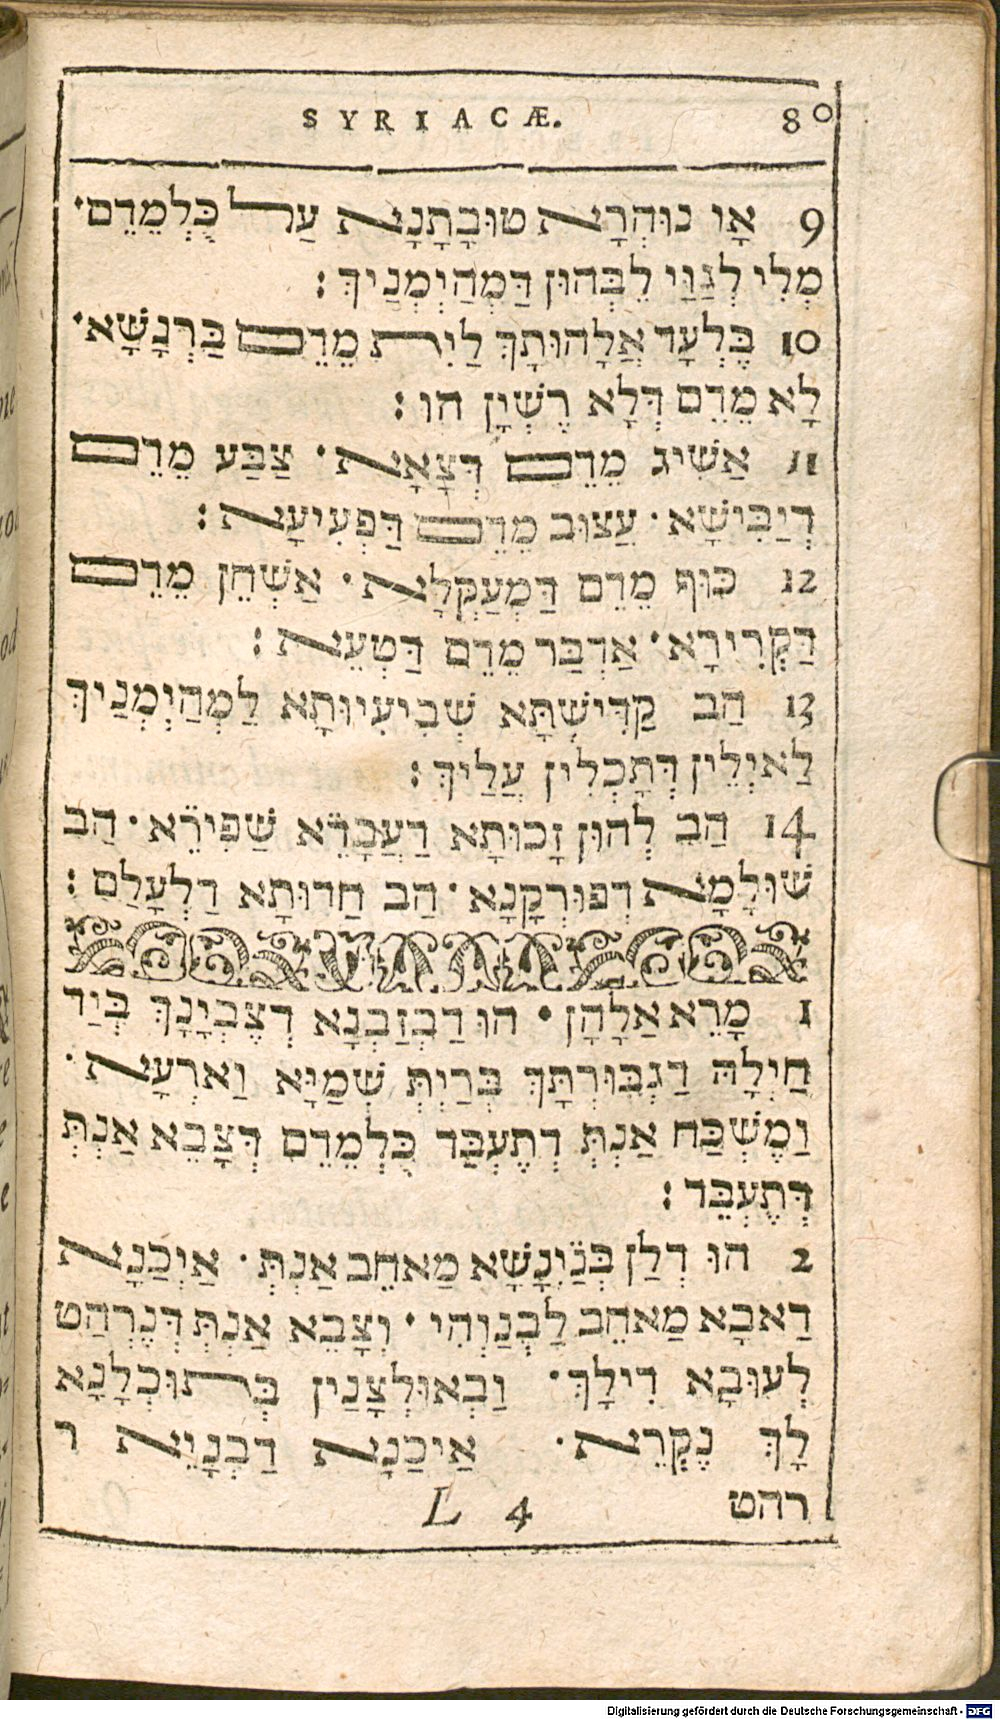 SYRIACÆ. 80
9 אָו נוּהְרָא טוּבָתָנָא עַל כֻּלְמֵדֵם·
מְלִי לְגַוַי לֵבְּהוּן דַּמְהַיְמְנַיךְ :
10 בֶּלְעָד אֲלָהוּתָךְ לַיִת מֵדֵם בַּרְנָשָׁא·
לָא מֵדֵם דְּלָא רֶשְׁיָן הו :
11 אַשִׁיג מֵדֵם דְּצָאָא· צַבַּע מֵדֵם
דְיַבִּישָׁא· עֲצוּב מֵדֵם דַּפְּעִיעָא :
12 כּוּף מֵדֵם דַּמְעַקְלָא· אַשְׁחֵן מֵדֵם
דַּקְרִירָא· אַדְבַּר מֵדֵם דַּטְעֵא :
13 הַב קַדִּישְׁתָּא שְׁבִיעִיוּתָא לַמְהַיְמְנַיךְ
לַאיְלֵין דְּתָכְלִין עֲלַיךְ :
14 הַב לְהוּן זָכוּתָא דַעֲבָדֵא שַׁפִּירֵא· הַב
שׁוּלָמָא דְפוּרְקָנָא· הַב חַדוּתָא דַלְעָלַם :
1 מָרֵא אַלָהָן · הוּ דַבְזַבְנָא דְצֶבְיָנָךְ בְּיַד
חַיְלָהּ דַגְבּוּרְתָּךְ בְּרַיְתְּ שְׁמַיָּא וַארְעָא·
וַמֶשְׁכַּח אַנְתְּ דְתֶעְבַּד כֻּלְמֵדֵם דְּצָבֵא אַנְתְּ
דְּתֶעְבֵּד :
2 הוּ דְלַן בְּנַיְנָשָׁא מַאחֵב אַנְתְּ· אַיְכַנָא
דַאבָא מַאחֵב לַבְנַוְהִי· וְצָבֵא אַנְתְּ דְּנֶרְהַט
לְעוּבָּא דִילָךְ· וַבְאוּלְצָנַין בְּתוּכְלָנָא
לָךְ נֶקְרֵא· אַיכַנָא דַבְנַיָא ר
רהט L 4
Digitalisierung gefördert durch die Deutsche Forschungsgemeinschaft - DFG